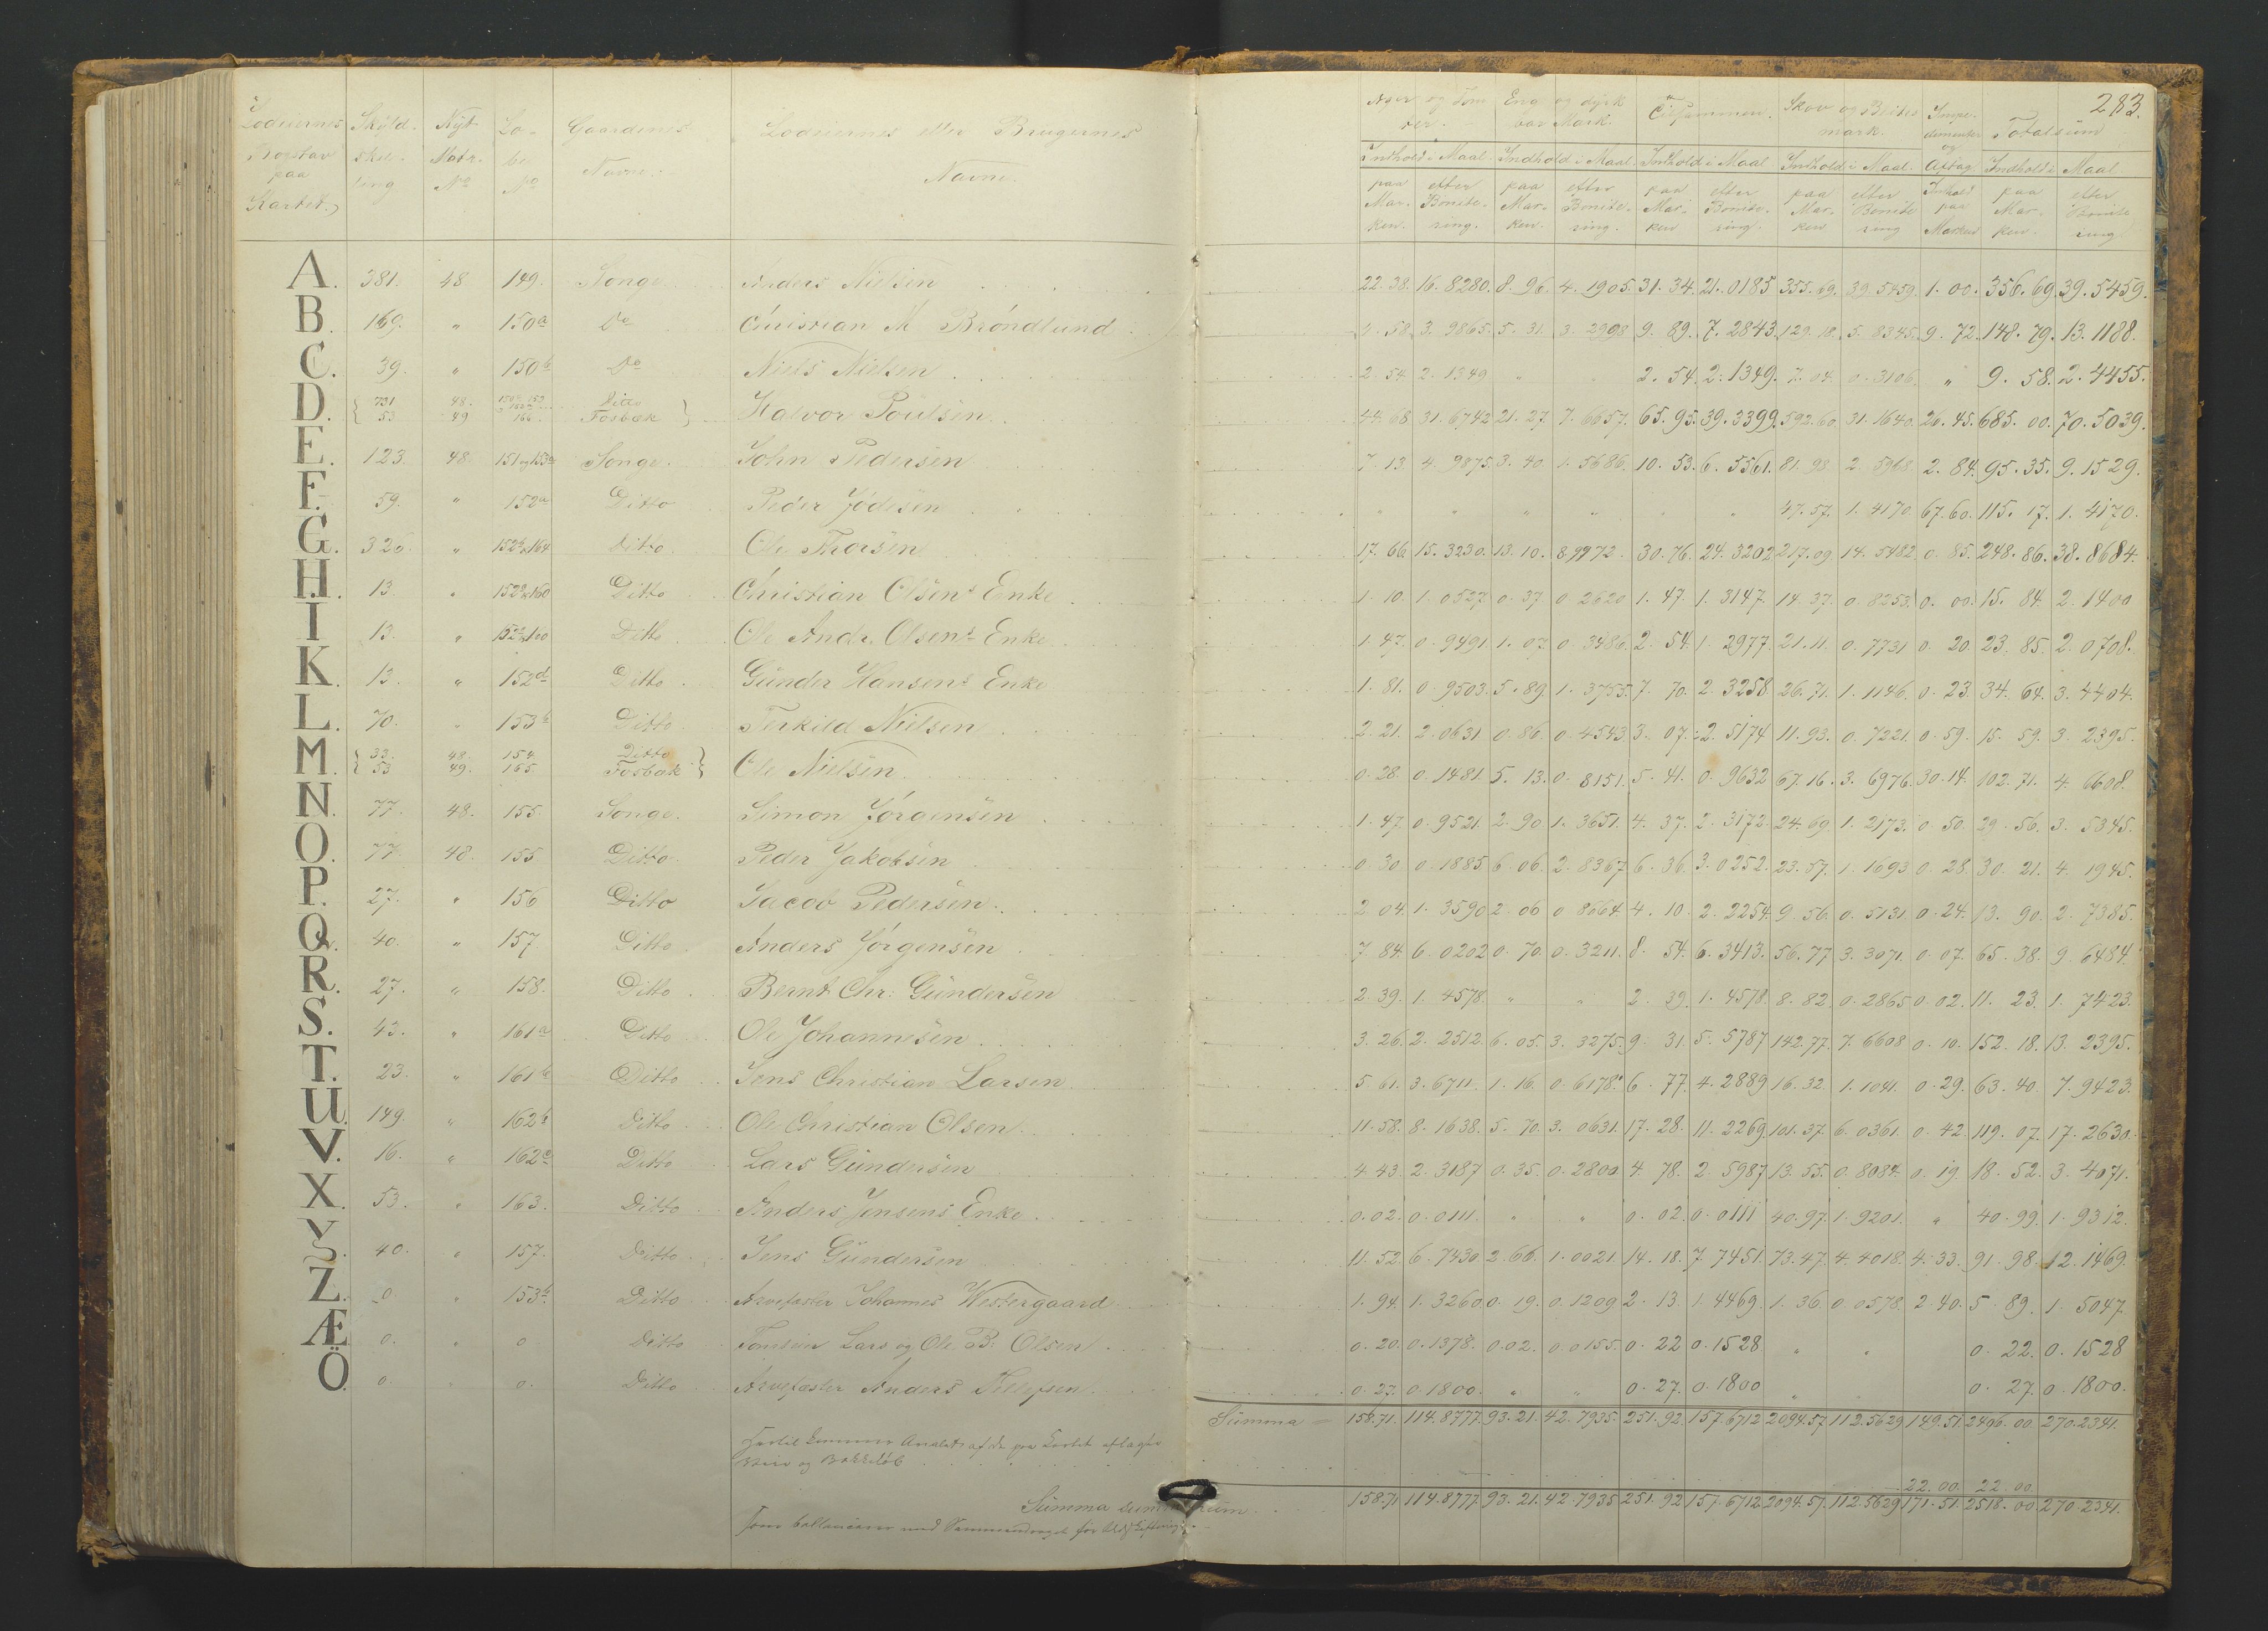 283.
Lodeiernes Bogstav paa Kartet. | Skyld- skil- ling | Nyt Matr. No | Lø- be No | Gaardenes Navne. | Lodeiernes eller Brugernes Navne. | Ager og Tom- ter. | Eng og dyrk bar Mark. | Tilsammen. | Skov og Beites mark. | Impe- dimenter og Aftag | Totalsum
Indhold i Maal | Indhold i Maal | Indhold i Maal | Indhold i Maal. | Inhold paa Marken | Indhold i Maal
paa Mar- ken. | efter Bonite- ring. | paa Mar- ken. | efter Bonite- ring. | paa Mar- ken | efter Bonite- ring. | paa Mar- ken | efter Bonite ring | paa Mar- ken. | efter Bonite ring
A. 381. 48 149. Songe Anders Nielsen 22. 38. 16. 8280. 8. 96. 4. 1905. 31. 34. 21. 0185 355. 69. 39. 5459. 1. 00. 356. 69. 39. 5459.
B. 169. " 150a Do Christian M Bröndlund 58. 3. 9865. 5. 31. 3. 2998 9. 89. 7. 2843. 129. 18. 5. 8345. 9. 72. 148. 79. 13. 1188.
C. 39. " 150b Do Niels Nielsen 2. 54. 2. 1349 " " 2. 54. 2. 1349. 7. 04. 0. 3106. " 9. 58. 2. 4455.
D. { 731 48. Ditto
53 49 Fosbæk } Halvor Poulsen 44. 68 31. 6742 21. 27. 7. 6657. 65. 95. 39. 3399. 592. 60. 31. 1640. 26. 45. 685. 00. 70. 5039.
E. 123. 48. 151 og 153a Songe. John Pedersen 7. 13. 4. 9875. 3. 40 1. 5686. 10. 53. 6. 5561. 81. 98. 2. 5968 2. 84. 95. 35. 9. 1529.
F. 59. " 152a Ditto Peder Jödesen " " " " " " 47. 57. 1. 4170. 67. 60. 115. 17. 1. 4170.
G. 326. " 152b 164 Ditto. Ole Thorsen 17. 66. 15. 3230. 13. 10. 8.9972. 30. 76. 24. 3202 217. 09. 14. 5482. 0. 85. 248. 86. 38. 8684.
H. 13. " 152c 160 Ditto Christian Olsens Enke 1. 10. 1. 0527. 0. 37. 0 2620 1. 47. 1. 3147. 14. 37. 0. 8253. 0. 00. 15. 84. 2. 1400
I 13. " 152c 160 Ditto Ole Andr. Olsens Enke 1. 47. 0. 9491 1. 07. 0. 3486. 2. 54. 1. 2977. 21. 11. 0. 7731 0. 20. 23. 85. 2. 0708.
K. 13. " 152d Ditto Günder Hansens Enke 1. 81. 0. 9503. 5. 89. 1. 3755. 7. 70. 2. 3258 26. 71. 1. 1146. 0. 23. 34. 64. 3. 4404.
L. 70. " 153b Ditto Terkild Nielsen 2. 21. 2. 0631 0. 86. 0. 4543 3. 07. 2. 5174 11. 93. 0. 7221. 0. 59. 15. 59. 3. 2395.
M. { 33. 48. 154. Ditto
53 49. 165. Fosbæk } Ole Nielsen 0. 28. 0. 1481. 5. 13. 0. 8151. 5. 41. 0. 9632 67. 16. 3. 6976. 30. 14. 102. 71. 4. 6608
N. 77. 48. 155 Songe. Simon Jörgensen 1. 47. 0. 9521. 2. 90 1. 3651. 4. 37. 2. 3172. 24. 69. 1. 2173. 0. 50. 29. 56. 3. 5345.
O. 77. 48. 155 Ditto Peder Jakobsen 0. 30 0. 1885 6. 06. 2. 8367 6. 36. 3. 0252. 23. 57. 1. 1693 0. 28. 30. 21. 4. 1945.
P. 27. " 156 Ditto Jacob Pedersen. 2. 04. 1. 3590 2. 06 0 8664. 4. 10. 2. 2254. 9. 56. 0. 5131. 0. 24. 13. 90. 2. 7385.
Q. 40. " 157. Ditto. Anders Jörgensen 7. 84. 6. 0202 0. 70. 0. 3211. 8. 54. 6. 3413. 56. 77 3. 3071. 0. 07. 65. 38. 9. 6484.
R. 27. " 158. Ditto Bernt Chr. Gündersen 2. 39. 1. 4578. " " 2. 39. 1. 4578. 8. 82. 0. 2865 0. 02. 11. 23. 1. 7423.
S. 43. " 161a Ditto Ole Johannesen 3. 26. 2. 2512. 6. 05. 3. 3275. 9. 31 5. 5787 142. 77. 7. 6608 0. 10. 152. 18. 13. 2395.
T. 23. " 161b Ditto Jens Christian Larsen 5. 61. 3. 6711. 1. 16. 0. 6178. 6. 77. 4. 2889 16. 32. 1. 1041. 0. 29. 63. 40. 7. 9423.
U. 149. " 162b Ditto Ole Christian Olsen. 11. 58. 8. 1638. 5. 70. 3. 0631. 17. 28. 11. 2269. 101. 37. 6. 0361. 0. 42. 119. 07. 17. 2630.
V. 16. " 162c Ditto Lars Gündersen 4. 43. 2. 3187 0. 35. 0. 2800. 4. 78. 2. 5987 13. 55. 0. 8084. 0. 19. 18. 52. 3. 4071.
X. 53. " 163. Ditto Anders Jensens Enke 0. 02. 0. 0111. " " 0. 02. 0. 0111 40. 97. 1. 9201. " 40. 99. 1. 9312.
Y. 40. " 157. Ditto Jens Gündersen 11. 52. 6. 7430 2. 66. 1. 0021. 14. 18. 7. 7451. 73. 47. 4. 4018. 4. 33. 91. 98. 12. 1469.
Z. 0 " 153b. Ditto Arvefæster Johannes Westergaard 1. 94. 1. 3260 0. 19. 0. 1209 2. 13. 1. 4469. 1. 36. 0. 0578. 2. 40. 5. 89. 1. 5047.
Æ 0. " 0 Ditto Lars og Ole B. Olsen 0. 20. 0. 1378. 0. 02. 0. 0155. 0. 22 0. 1528 " " 0. 22. 0. 1528
Ö. 0. " 0. Ditto Arvefæster Anders 0. 27. 0. 1800. " " 0. 27. 0. 1800 " 0. 27. 0. 1800.
Summa 158. 71. 114. 8777. 93. 21. 42. 7935. 251. 92. 157. 6712 2094. 57. 112. 5629 149. 51. 2496. 00. 270. 2341.
Hertil kommer af de paa Kartet aflagte
og Bækkeløb 22. 00. 22. 00.
Summa summarum 158. 71 114. 8777. 93. 21. 42. 7935 251. 92 157. 6712. 2094. 57. 112. 5629 171. 51. 2518. 00. 270. 2341.
som ballancerer med Sammendraget før Udskiftningen.